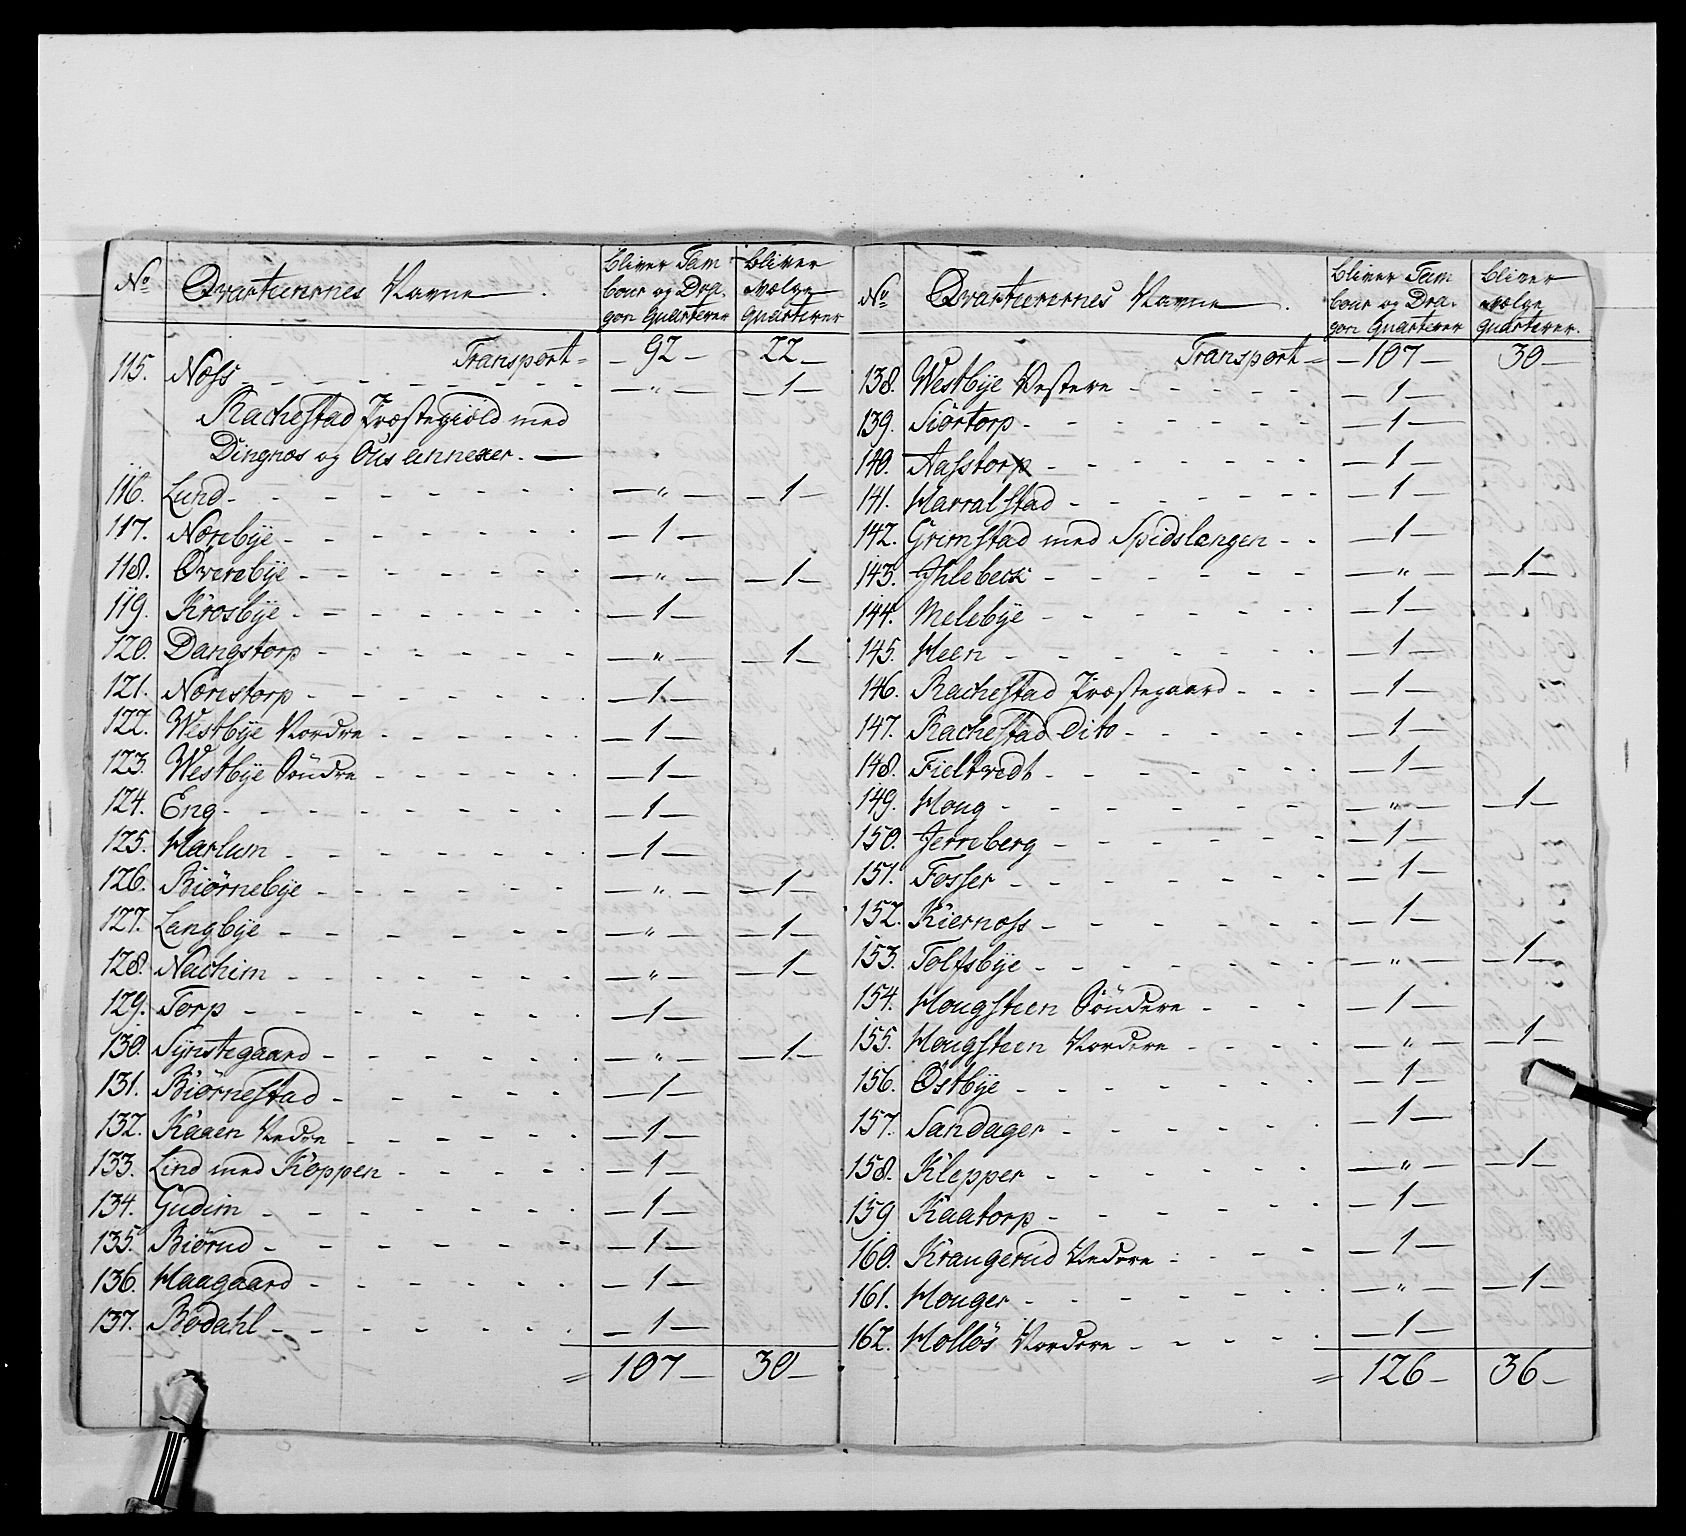 No Qvarteerernes Navne bliver Tam bliver
bour og Dra- Vælge
gon Quarterer Quarterer
Transport = 92 22
115. Næss " 1
Rachestad Præstegiæld med
Dingnæs og Ous annexer.
116. Lund " 1
117. Nærebÿe 1
118. Øverebÿe " 1
119. Krosbÿe 1
120. Dangstorp " 1
121. Nærestorp 1
122. Westbÿe Nordre 1
123. Westbÿe Söndre 1
124. Eng 1
125. Harlum 1
126. Biørnebÿe " 1
127. Langbÿe " 1
128. Nachim " 1
129. Torp 1
130. Sÿnstegaard " 1
131. Biørnestad 1
132. Kaaen Nedre 1
133. Lind med Koppen 1
134. Gudim 1
135. Biørud 1
136. Haagaard 1
137. Bodahl 1
= 107 30
No Qvarteerernes Navne bliver Tam bliver
bour og Dra- Vælge
gon Quarterer Quarterer.
Transport = 107 30
138. Westbÿe Vestere 1
139. Siörtorp 1
140. Aasstorp 1
141. Harralstad 1
142. Grimstad med Spidslangen 1
143. Ihlebeck " 1
144. Melebÿe 1
145. Heen 1
146. Rachestad Præstegaard 1
147. Rachestad dito 1
148. Fieltvedt 1
149. Houg " 1
150. Jerreberg 1
151. Fosser 1
152. Kiernæss 1
153. Tolfsbÿe " 1
154. Hougsteen Söndere 1
155. Hougsteen Nordere " 1
156. Østbÿe 1
157. Sandager 1
158. Klepper " 1
159 Kaatorp 1
160. Krangerud Nedere 1
161. Houger " 1
162. Holløs Nordere 1
= 126 36